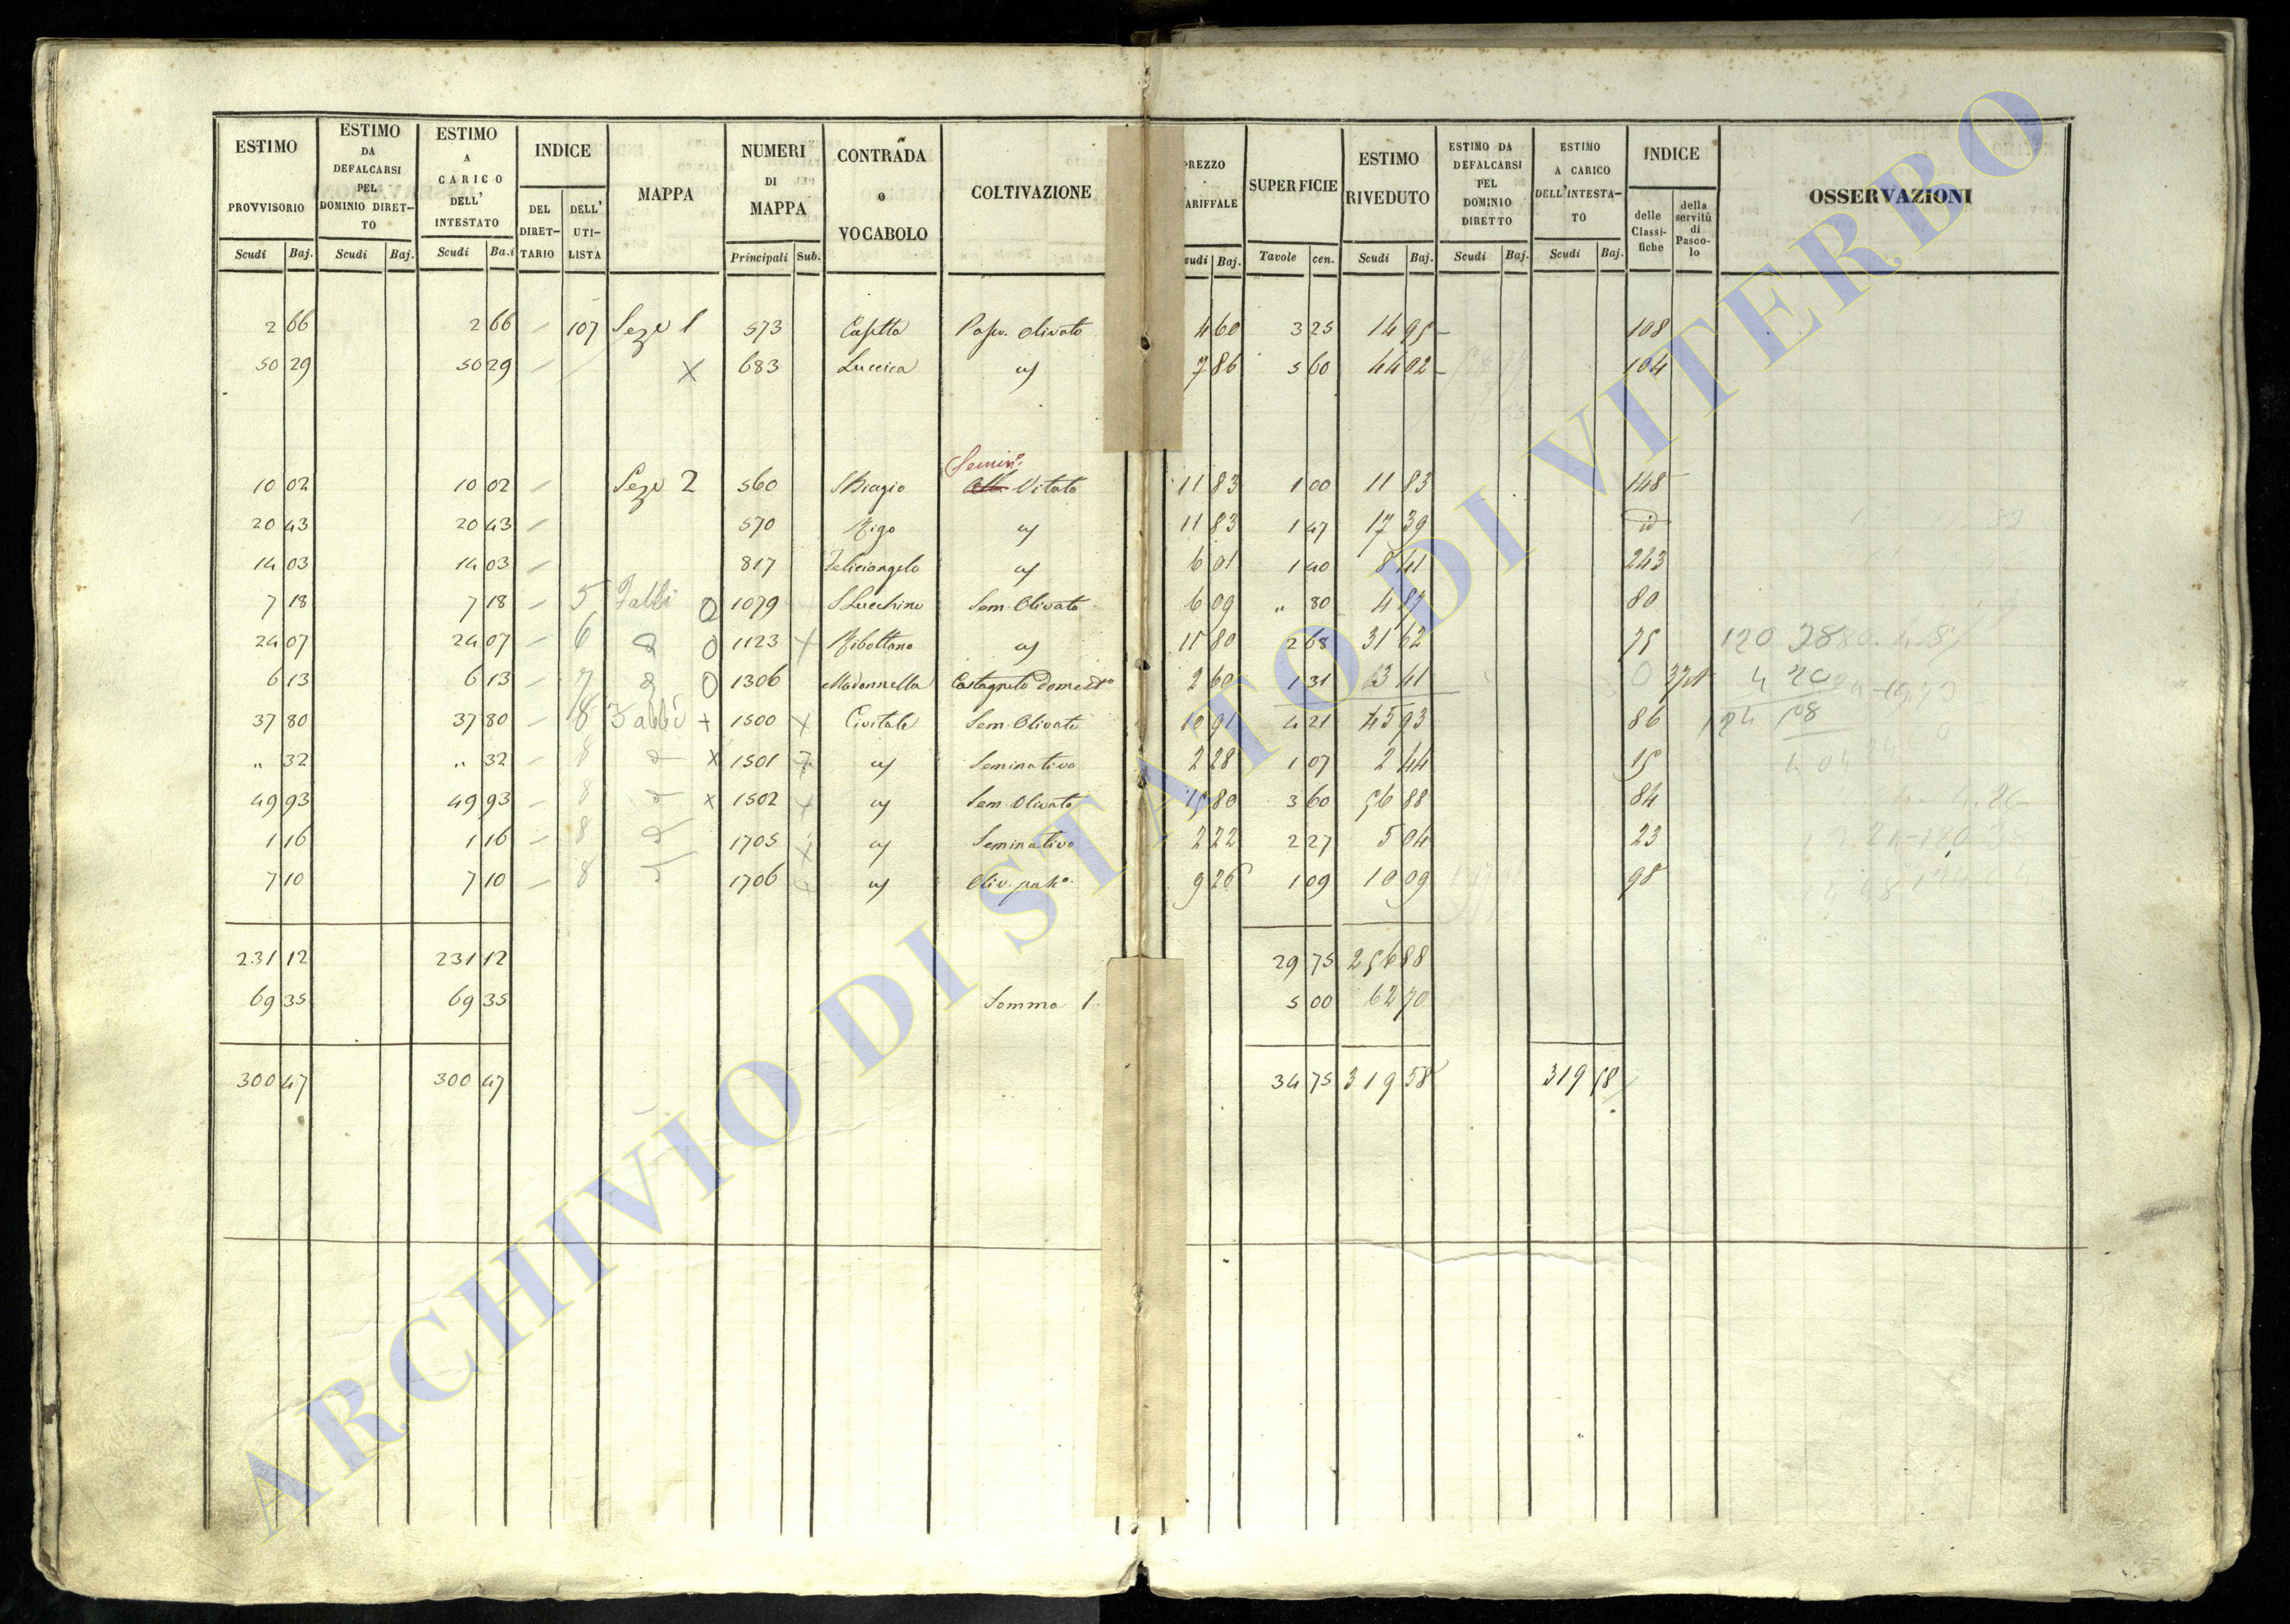 ESTIMO PROVVISORIO Scudi Baj.
ESTIMO DA DEFALCARSI PEL DOMINIO DIRET-TO Scudi Baj.
ESTIMO A CARICO DELL' INTESTATO Scudi Ba.i
INDICE DEL DIRET-TARIO DELL' UTI-LISTA
MAPPA
NUMERI DI MAPPA Principali Sub.
CONTRADA o VOCABOLO
COLTIVAZIONE
PREZZO ARIFFALE udi Baj.
SUPERFICIE Tavole cen.
ESTIMO RIVEDUTO Scudi Baj.
ESTIMO DA DEFALCARSI PEL DOMINIO DIRETTO Scudi Baj.
ESTIMO A CARICO DELL'INTESTA-TO Scudi Baj.
INDICE delle Classi-fiche della servitù di Pasco-lo
OSSERVAZIONI
2 66 2 66 107 Seze 1 573 Casetta Pasc. Olivato 4 60 3 25 14 95 108
50 29 50 29 X 683 Luccica 7 86 5 60 44 02 104
Semin.
10 02 10 02 Seze 2 560 S Biagio Vitato 11 83 1 00 11 83 148
20 43 20 43 570 Rigo 11 83 1 47 17 39 id
14 03 14 03 817 Feliciangelo 6 01 1 40 8 41 243
7 18 7 18 5 Fabbi O 1079 S Lucchino Sem. Olivato 6 09 " 80 4 87 80
24 07 24 07 6 O 1123 Ribottano 11 80 2 68 31 62 75 120
6 13 6 13 7 O 1306 Madonnella Castagneto Domest.o 2 60 1 31 3 41 4 20
37 80 37 80 8 Fabbi + 1500 Civitale Sem. Olivato 10 91 4 21 45 93 86
" 32 " 32 8 x 1501 Seminativo 2 28 1 07 2 44 15
49 93 49 93 8 x 1502 Sem. Olivato 15 80 3 60 56 88 84
1 16 1 16 8 1705 Seminativo 2 22 2 27 5 04 23
7 10 7 10 8 1706 Oliv. pas.o 9 26 1 09 10 09 98
231 12 231 12 29 75 256 88
69 35 69 35 Somma 1 5 00 62 70
300 47 300 47 34 75 319 58 319 58
ARCHIVIO DI STATO DI VITERBO